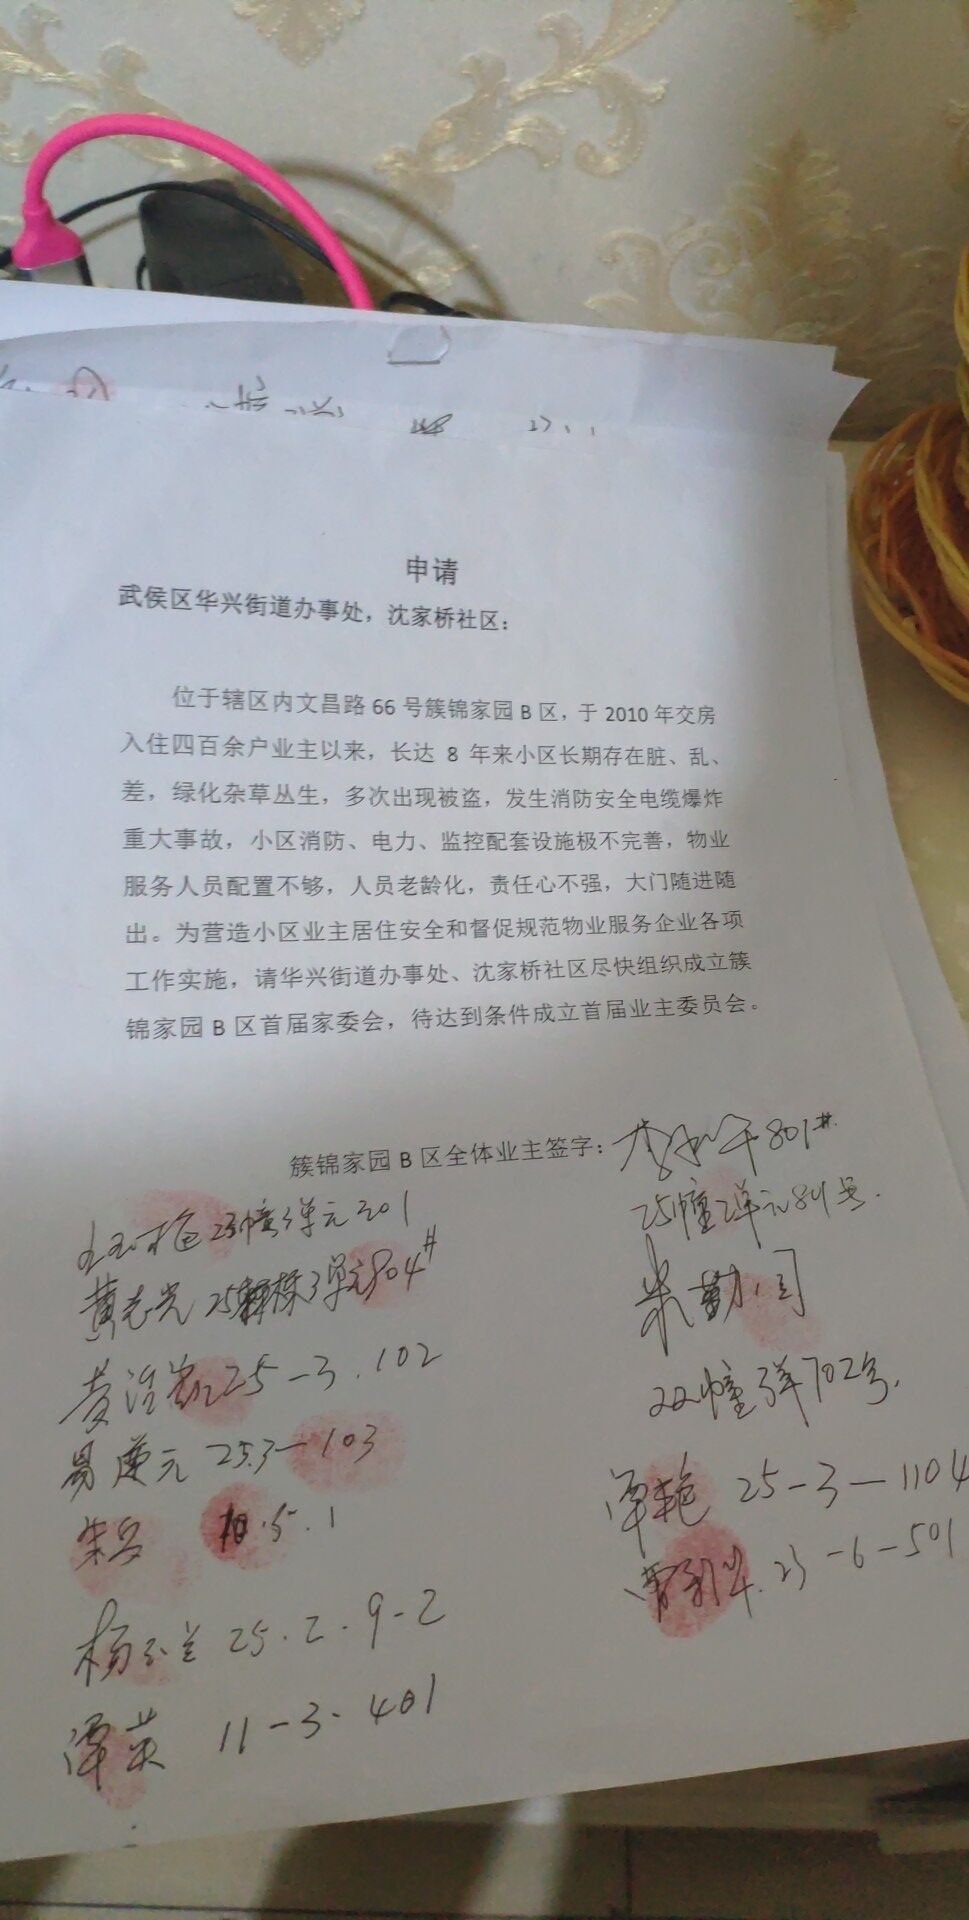 申请
武侯区华兴街道办事处，沈家桥社区：
位于辖区内文昌路 66 号簇锦家园 B 区，于 2010 年交房
入住四百余户业主以来，长达 8 年来小区长期存在脏、乱、
差，绿化杂草丛生，多次出现被盗，发生消防安全电缆爆炸
重大事故，小区消防、电力、监控配套设施极不完善，物业
服务人员配置不够，人员老龄化，责任心不强，大门随进随
出。为营造小区业主居住安全和督促规范物业服务企业各项
工作实施，请华兴街道办事处、沈家桥社区尽快组织成立簇
锦家园 B 区首届家委会，待达到条件成立首届业主委员会。
簇锦家园 B 区全体业主签字： 801#
幢 单元 201
黄志光 25 3单元804#
25幢2单元 号.
25-3.102
22幢 702号.
易莲元 25.3-103
朱 .5.1
谭艳 25-3-1104
-6-501
杨 兰 25.2.9-2
谭英 11-3-401